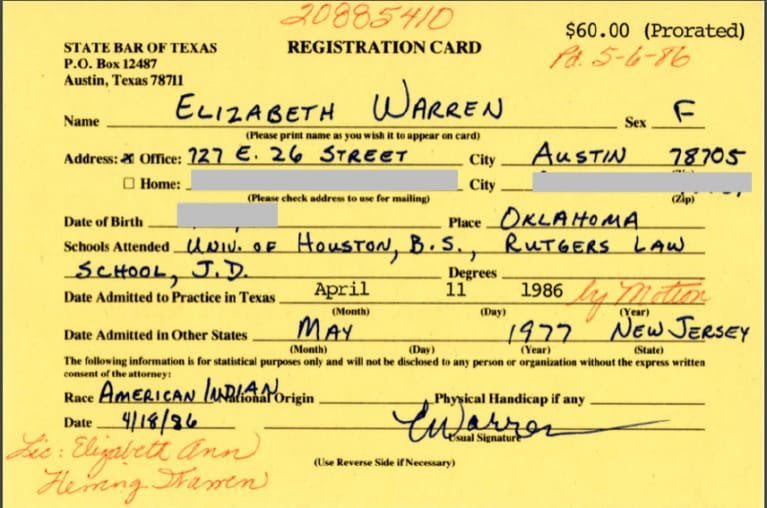 20885410
$60.00 (Prorated)
Pd. 5-6-86
STATE BAR OF TEXAS
P.O. Box 12487
Austin, Texas 78711
REGISTRATION CARD
Name ELIZABETH WARREN Sex F
(Please print name as you wish it to appear on card)
Address: ☒ Office: 727 E. 26 STREET City AUSTIN 78705
☐ Home: City
(Please check address to use for mailing) (Zip)
Date of Birth Place OKLAHOMA
Schools Attended UNIV. OF HOUSTON, B.S., RUTGERS LAW
SCHOOL, J.D. Degrees
Date Admitted to Practice in Texas April 11 1986 by Motion
(Month) (Day) (Year)
Date Admitted in Other States MAY 1977 NEW JERSEY
(Month) (Day) (Year) (State)
The following information is for statistical purposes only and will not be disclosed to any person or organization without the express written
consent of the attorney:
Race AMERICAN INDIAN National Origin Physical Handicap if any
Date 4/18/86 EWarren
Usual Signature
Lic: Elizabeth Ann
Herring Warren
(Use Reverse Side if Necessary)